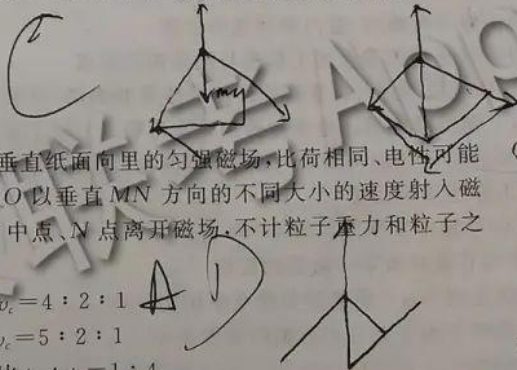 C
mg
垂直纸面向里的匀强磁场,比荷相同、电性可能
O 以垂直 MN 方向的不同大小的速度射入磁
中点、N 点离开磁场,不计粒子重力和粒子之
v_c=4:2:1
A D
v_c=5:2:1
=1:4
联考 App